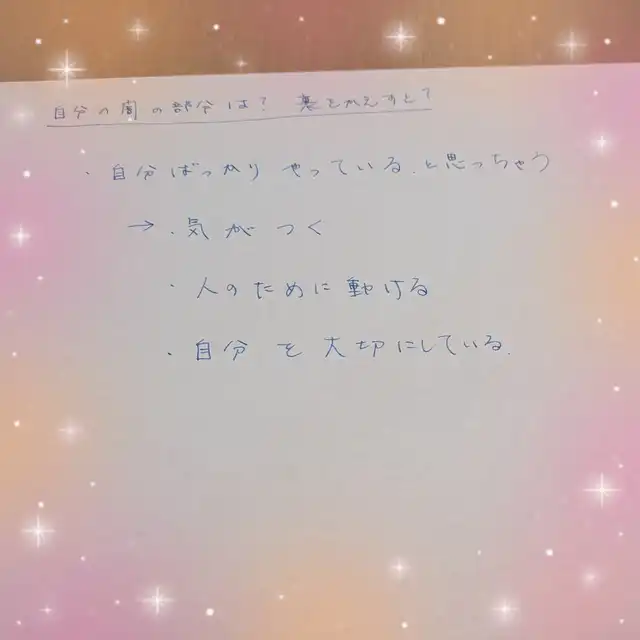 自分の闇の部分は？ 裏をかえすと？
・自分ばっかりやっている。と思っちゃう
→・気がつく
・人のために動ける
・自分を大切にしている。